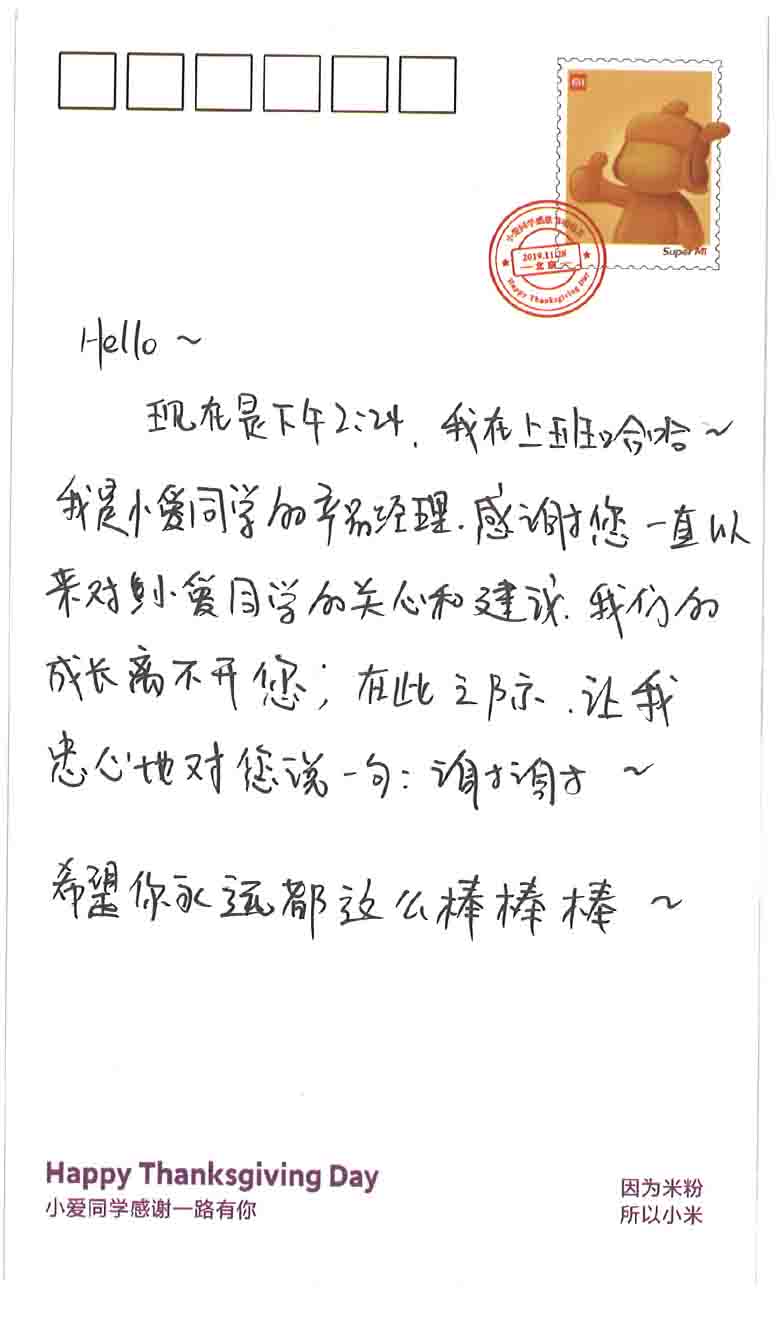 Super MI
小爱同学感恩
2019.11.28
北京
Happy Thanksgiving Day
Hello ~
现在是下午2:24，我在上班哈哈~
我是小爱同学的产品经理，感谢您一直以
来对小爱同学的关心和建议，我们的
成长离不开您；在此之际，让我
忠心地对您说一句：谢谢 ~
希望你永远都这么棒棒棒 ~
Happy Thanksgiving Day
小爱同学感谢一路有你
因为米粉
所以小米